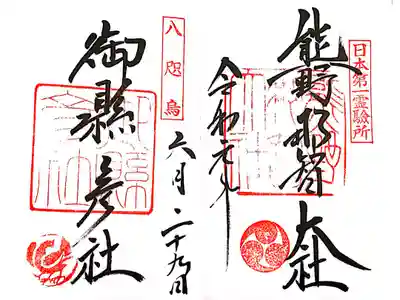 日本第一霊験所
熊野那智大社
令和元年
八咫烏
六月二十九日
御縣彦社